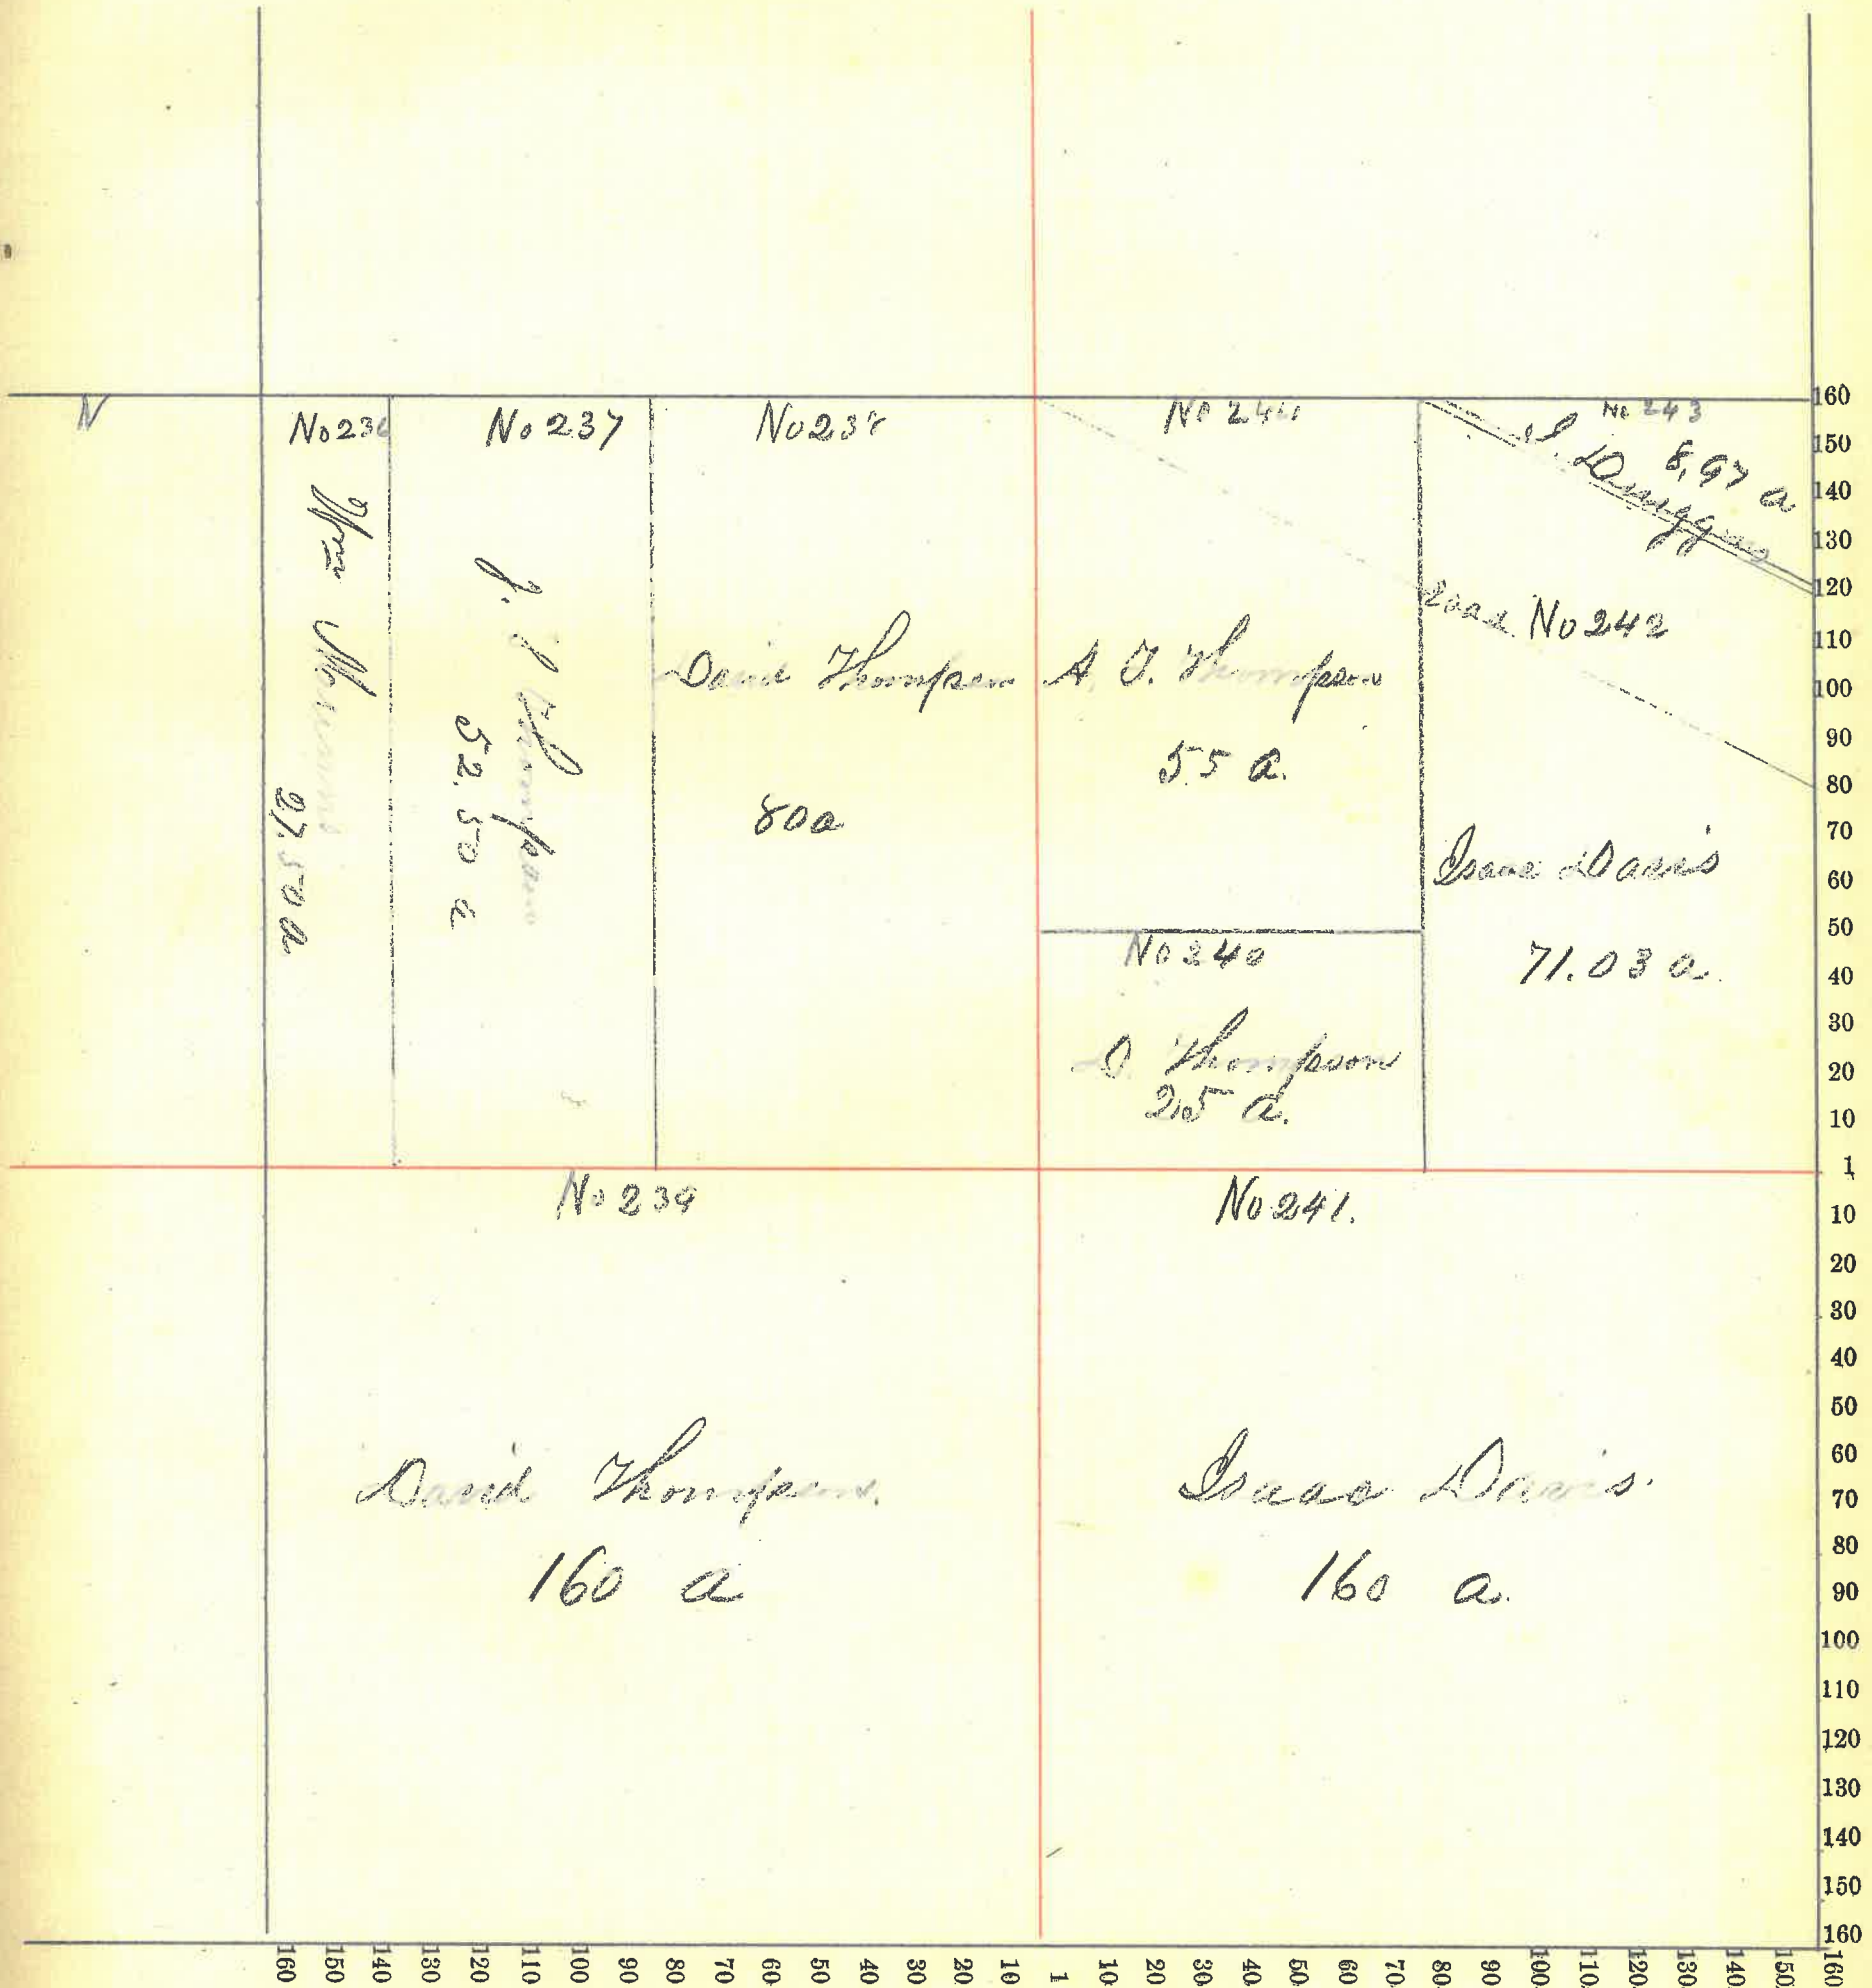 N
No 236
Wm
27.50 a
No 237
J. J. Thompson
52.50 a
No 238
David Thompson
80 a
No 244
A. J. Thompson
55 a.
No 243
Duggins
8,97 a
No 242
Isaac Davis
71.03 a.
No 240
D. Thompson
25 a.
No 239
David Thompson.
160 a
No 241.
Isaac Davis.
160 a.
160
150
140
130
120
110
100
90
80
70
60
50
40
30
20
10
1
10
20
30
40
50
60
70
80
90
100
110
120
130
140
150
160
160 150 140 130 120 110 100 90 80 70 60 50 40 30 20 10 1 10 20 30 40 50 60 70 80 90 100 110 120 130 140 150 160